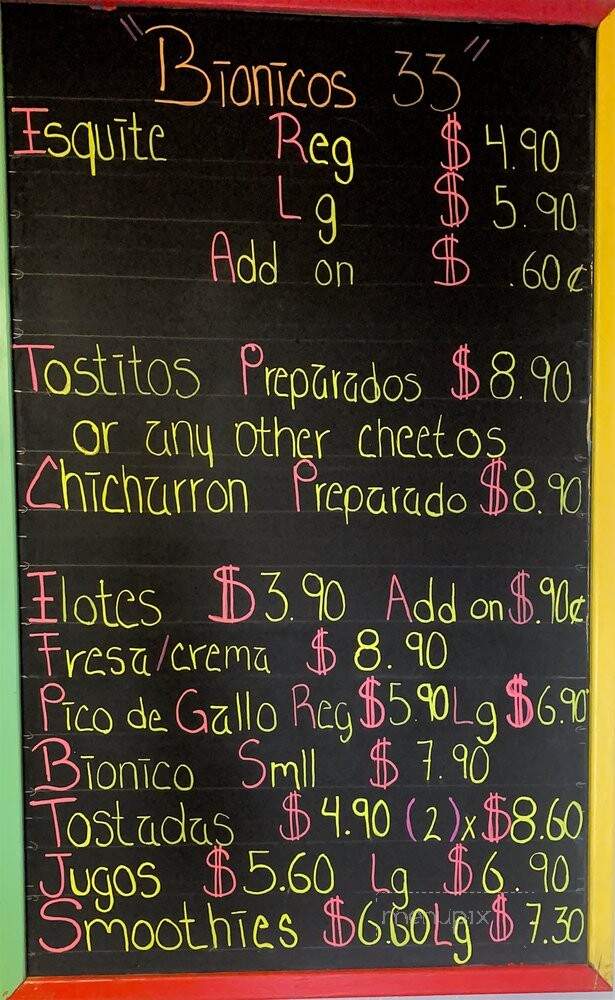 "Bionicos 33"
Esquite Reg $ 4.90
Lg $ 5.90
Add on $ .60¢
Tostitos Preparados $8.90
or any other cheetos
Chicharron Preparado $8.90
Elotes $3.90 Add on $.90¢
Fresa/crema $ 8.90
Pico de Gallo Reg $5.90 Lg $6.90
Bionico Smll $ 7.90
Tostadas $ 4.90 (2)x $8.60
Jugos $5.60 Lg $6.90
Smoothies $6.60 Lg $ 7.30
menupix